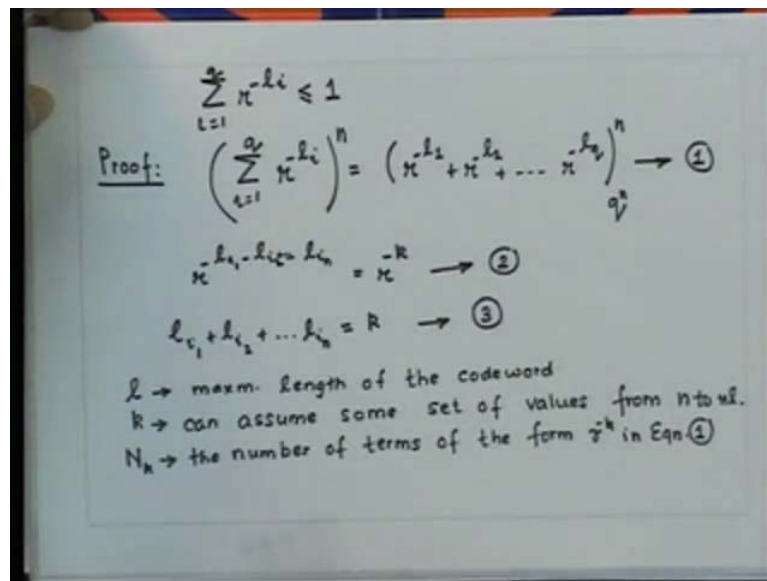 q
∑ r^-li ≤ 1
i=1
Proof: (∑_{i=1}^{q} r^-li)^n = (r^-l1 + r^-l2 + ... r^-lq)^n → ①
q^n
r^-li1-li2-lin = r^-k → ②
li1 + li2 + ... lin = k → ③
l → maxm. length of the codeword
k → can assume some set of values from n to nl.
Nk → the number of terms of the form r^-k in Eqn. ①